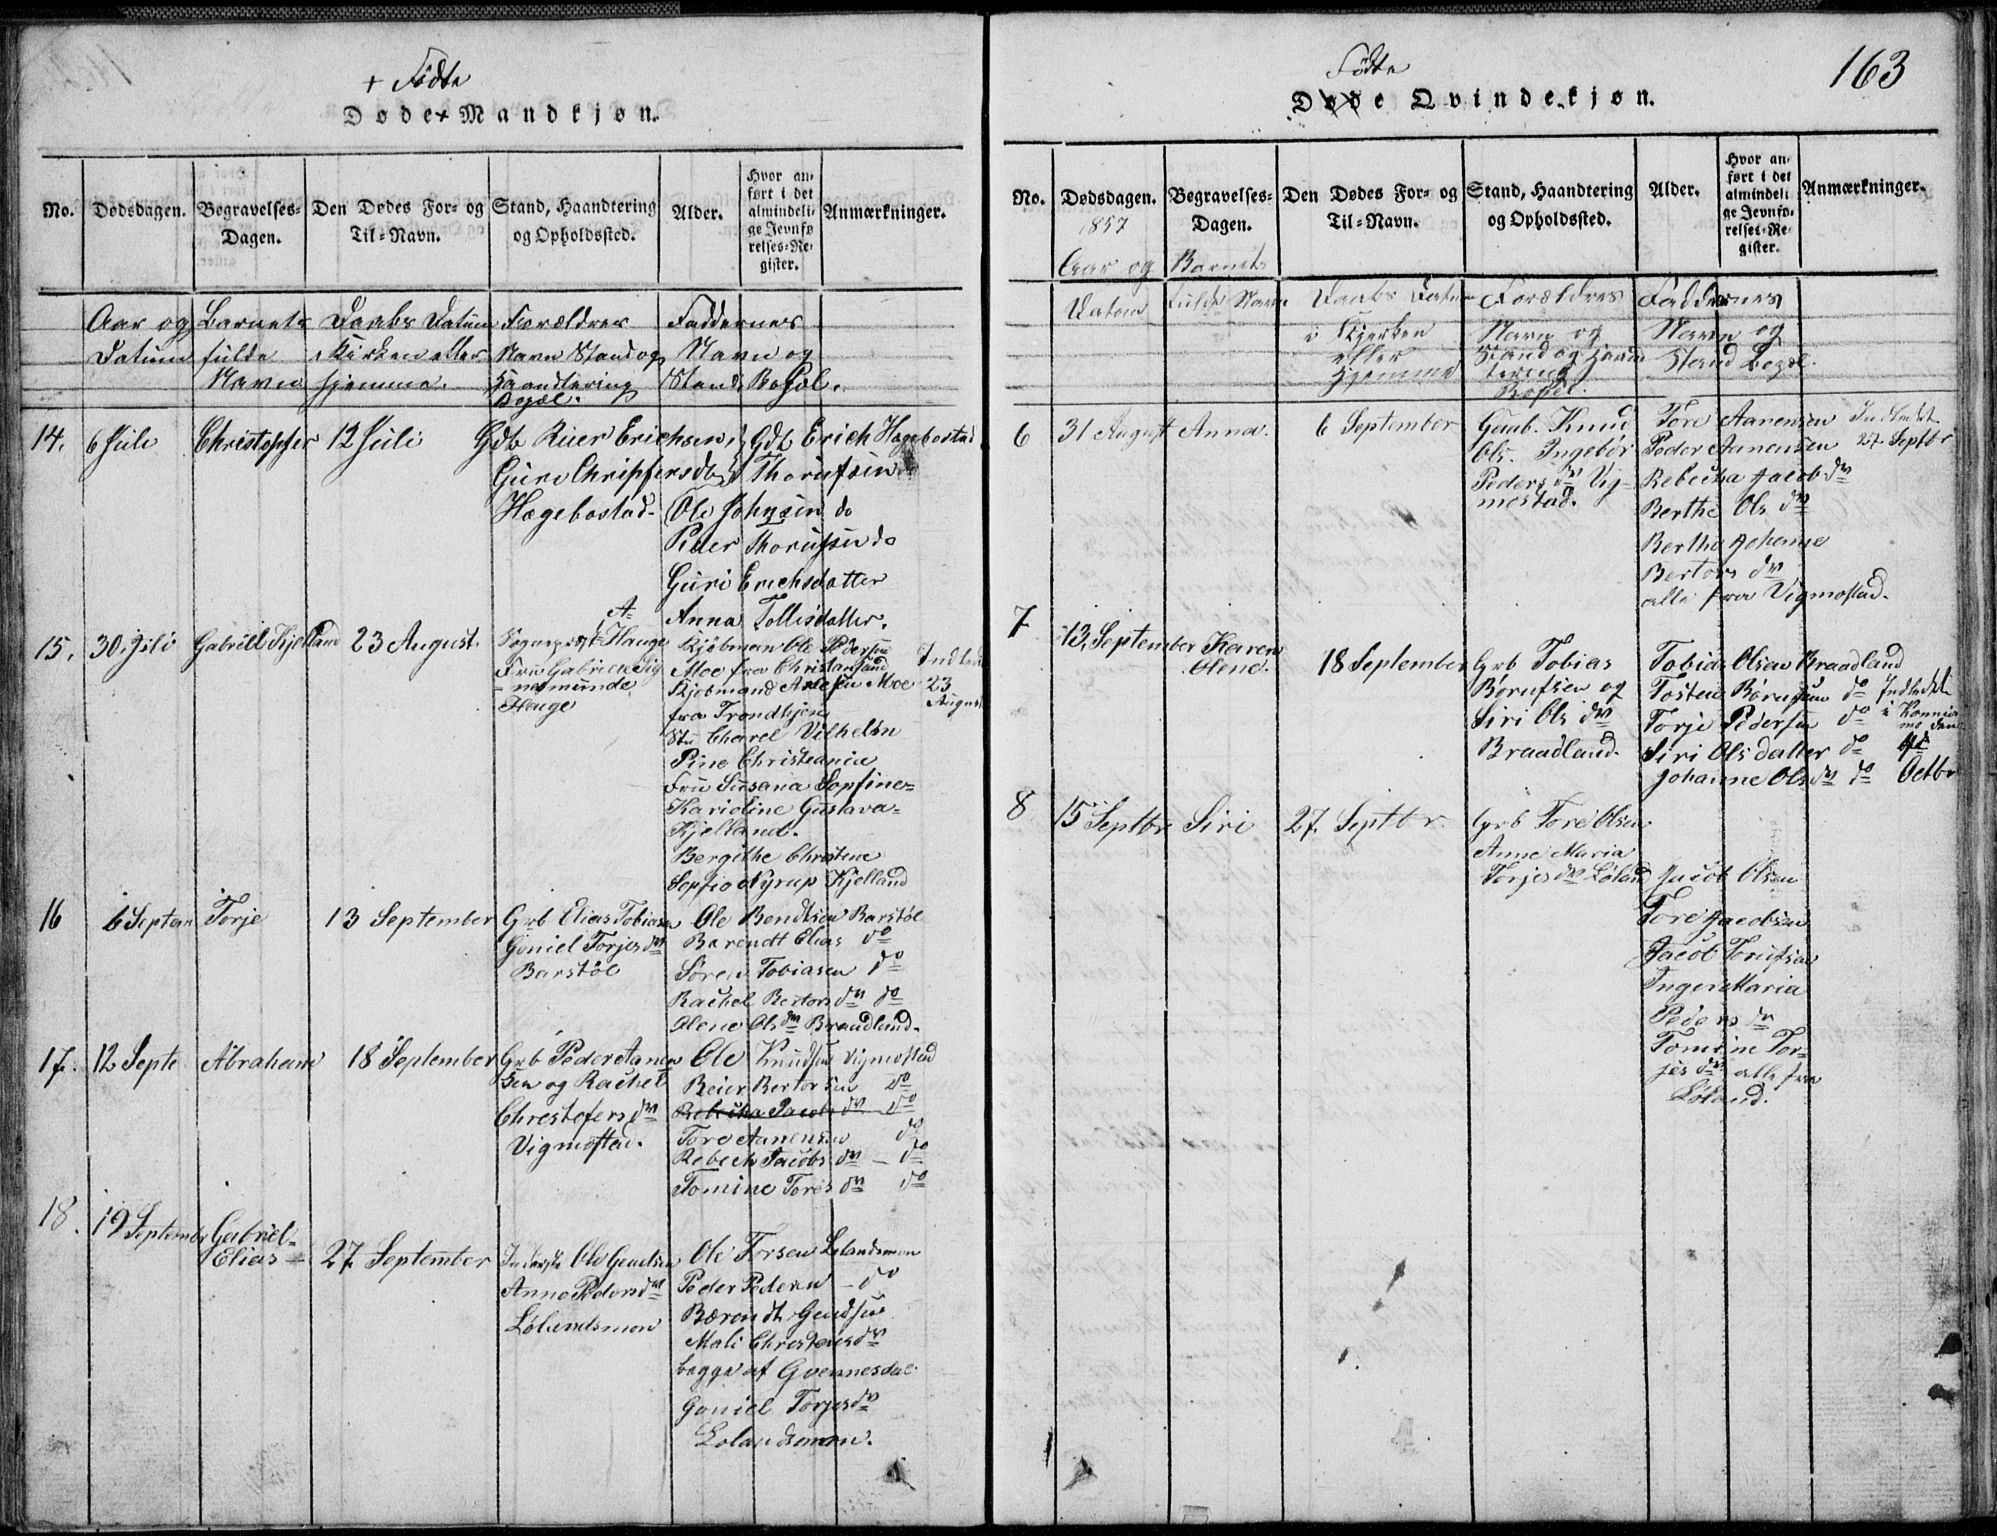 + Födte
Døde Mandkjøn.
No.
Dødsdagen.
Begravelses-
Dagen.
Den Dødes For- og
Til-Navn.
Stand, Haandtering
og Opholdssted.
Alder.
Hvor an-
ført i det
almindeli-
ge Jevnfø-
relses-Re-
gister.
Anmærkninger.
Aar og
Datum
Barnets
fulde
Navn
Daabs Datum
i Kirken eller
hjemme.
Forældres
Navn Stand og
Haandtering
Bopæl.
Faddernes
Navn og
Stand, Bopæl.
14.
6 Juli
Christopher
12 Juli
Gdb Reier Erichsen,
Guri
Hægebostad.
Gdb Erich Hægebostad
Ole Johnsen do
Peder do
Guri Erichsdatter
Anna Tollisdatter.
15.
30. Juli
Gabriell Kjelland
23 August.
A.
Hauge
Fru
Hauge
Kjøbmand Ole Pedersen
Moe fra Christiansand
Kjøbmand Moe
fra Trondhjem
Vilhelm
Christiania
Fru Susana Sophine=
Karioline Gustava=
Kjelland.
Bergithe Christine
Sophie Nyrup Kjelland
23
August
16
6 Septem
Torje
13 September
Grb Elias Tobiasen
Goniel Torjes dtr
Barstöl
Ole Bendtsen Barstöl
Barendt Elias do
Sören Tobiasen do
Rachel Bertors dtr do
Olene Ols dtr Braadland.
17.
12 Septe
Abraham
18 September
Grb Peder Aanen
sen og Rachel
Christofers dtr
Vigmostad.
Ole Knudsen Vigmostad
Reier Bertorsen do
Rebecka Jacobs dtr do
Tore Aanensen do
Rebeck Jacobs dtr - do
Tomine Tores dtr do
18.
19 September
Gabriel=
Elias
27 September
Ole
Anne Peders dtr
Lölandsmon
Ole Torsen Lolandsmon
Peder Pedersen - do
Bærendt
Mali Christens dtr
begge af Gvennesdal
Goniel Torjes dtr
Lolandsmon.
163
Födte
Døde Qvindekjøn.
No.
Dødsdagen.
1857
Begravelses-
Dagen.
Den Dødes For- og
Til-Navn.
Stand, Haandtering
og Opholdssted.
Alder.
Hvor an-
ført i det
almindeli
ge Jevnfø-
relses-Re-
gister.
Anmærkninger.
Aar og
Datum
Barnets
fulde Navn
Daabs Datum
i Kjerken
eller
Hjemme
Forældres
Navn og
Stand og Haan
tering
Bopæl.
Faddernes
Navn og
Stand Bopæl.
6
31 August
Anna.
6 September
Gaab. Knud
Ols. Ingebör
Peders dtr Vig-
mostad.
Tore Aanensen
Peder Aanensen
Rebecka Jacob dtr
Berthe Ols dtr
Berthe Johanne
Bertors dtr
alle fra Vigmostad.
Indledet
27 Septbr
7
13, September
Karen
Olene.
18 September
Grb Tobias
og
Siri Ols dtr
Braadland.
Tobias Olsen Braadland
Tosten do
Torje Pedersen do
Siri Olsdatter do
Johanne Ols dtr do
Indledet
i
den
Octbr
8
15 Septbr
Siri
27. Septbr.
Grb Tore Olsen
Anne Maria
Torjes dtr Löland
Jacob Olsen
Tore Jacobsen
Jacob
Inger Maria
Peders dtr
Tomine Tor=
jes dtr alle fra
Löland.